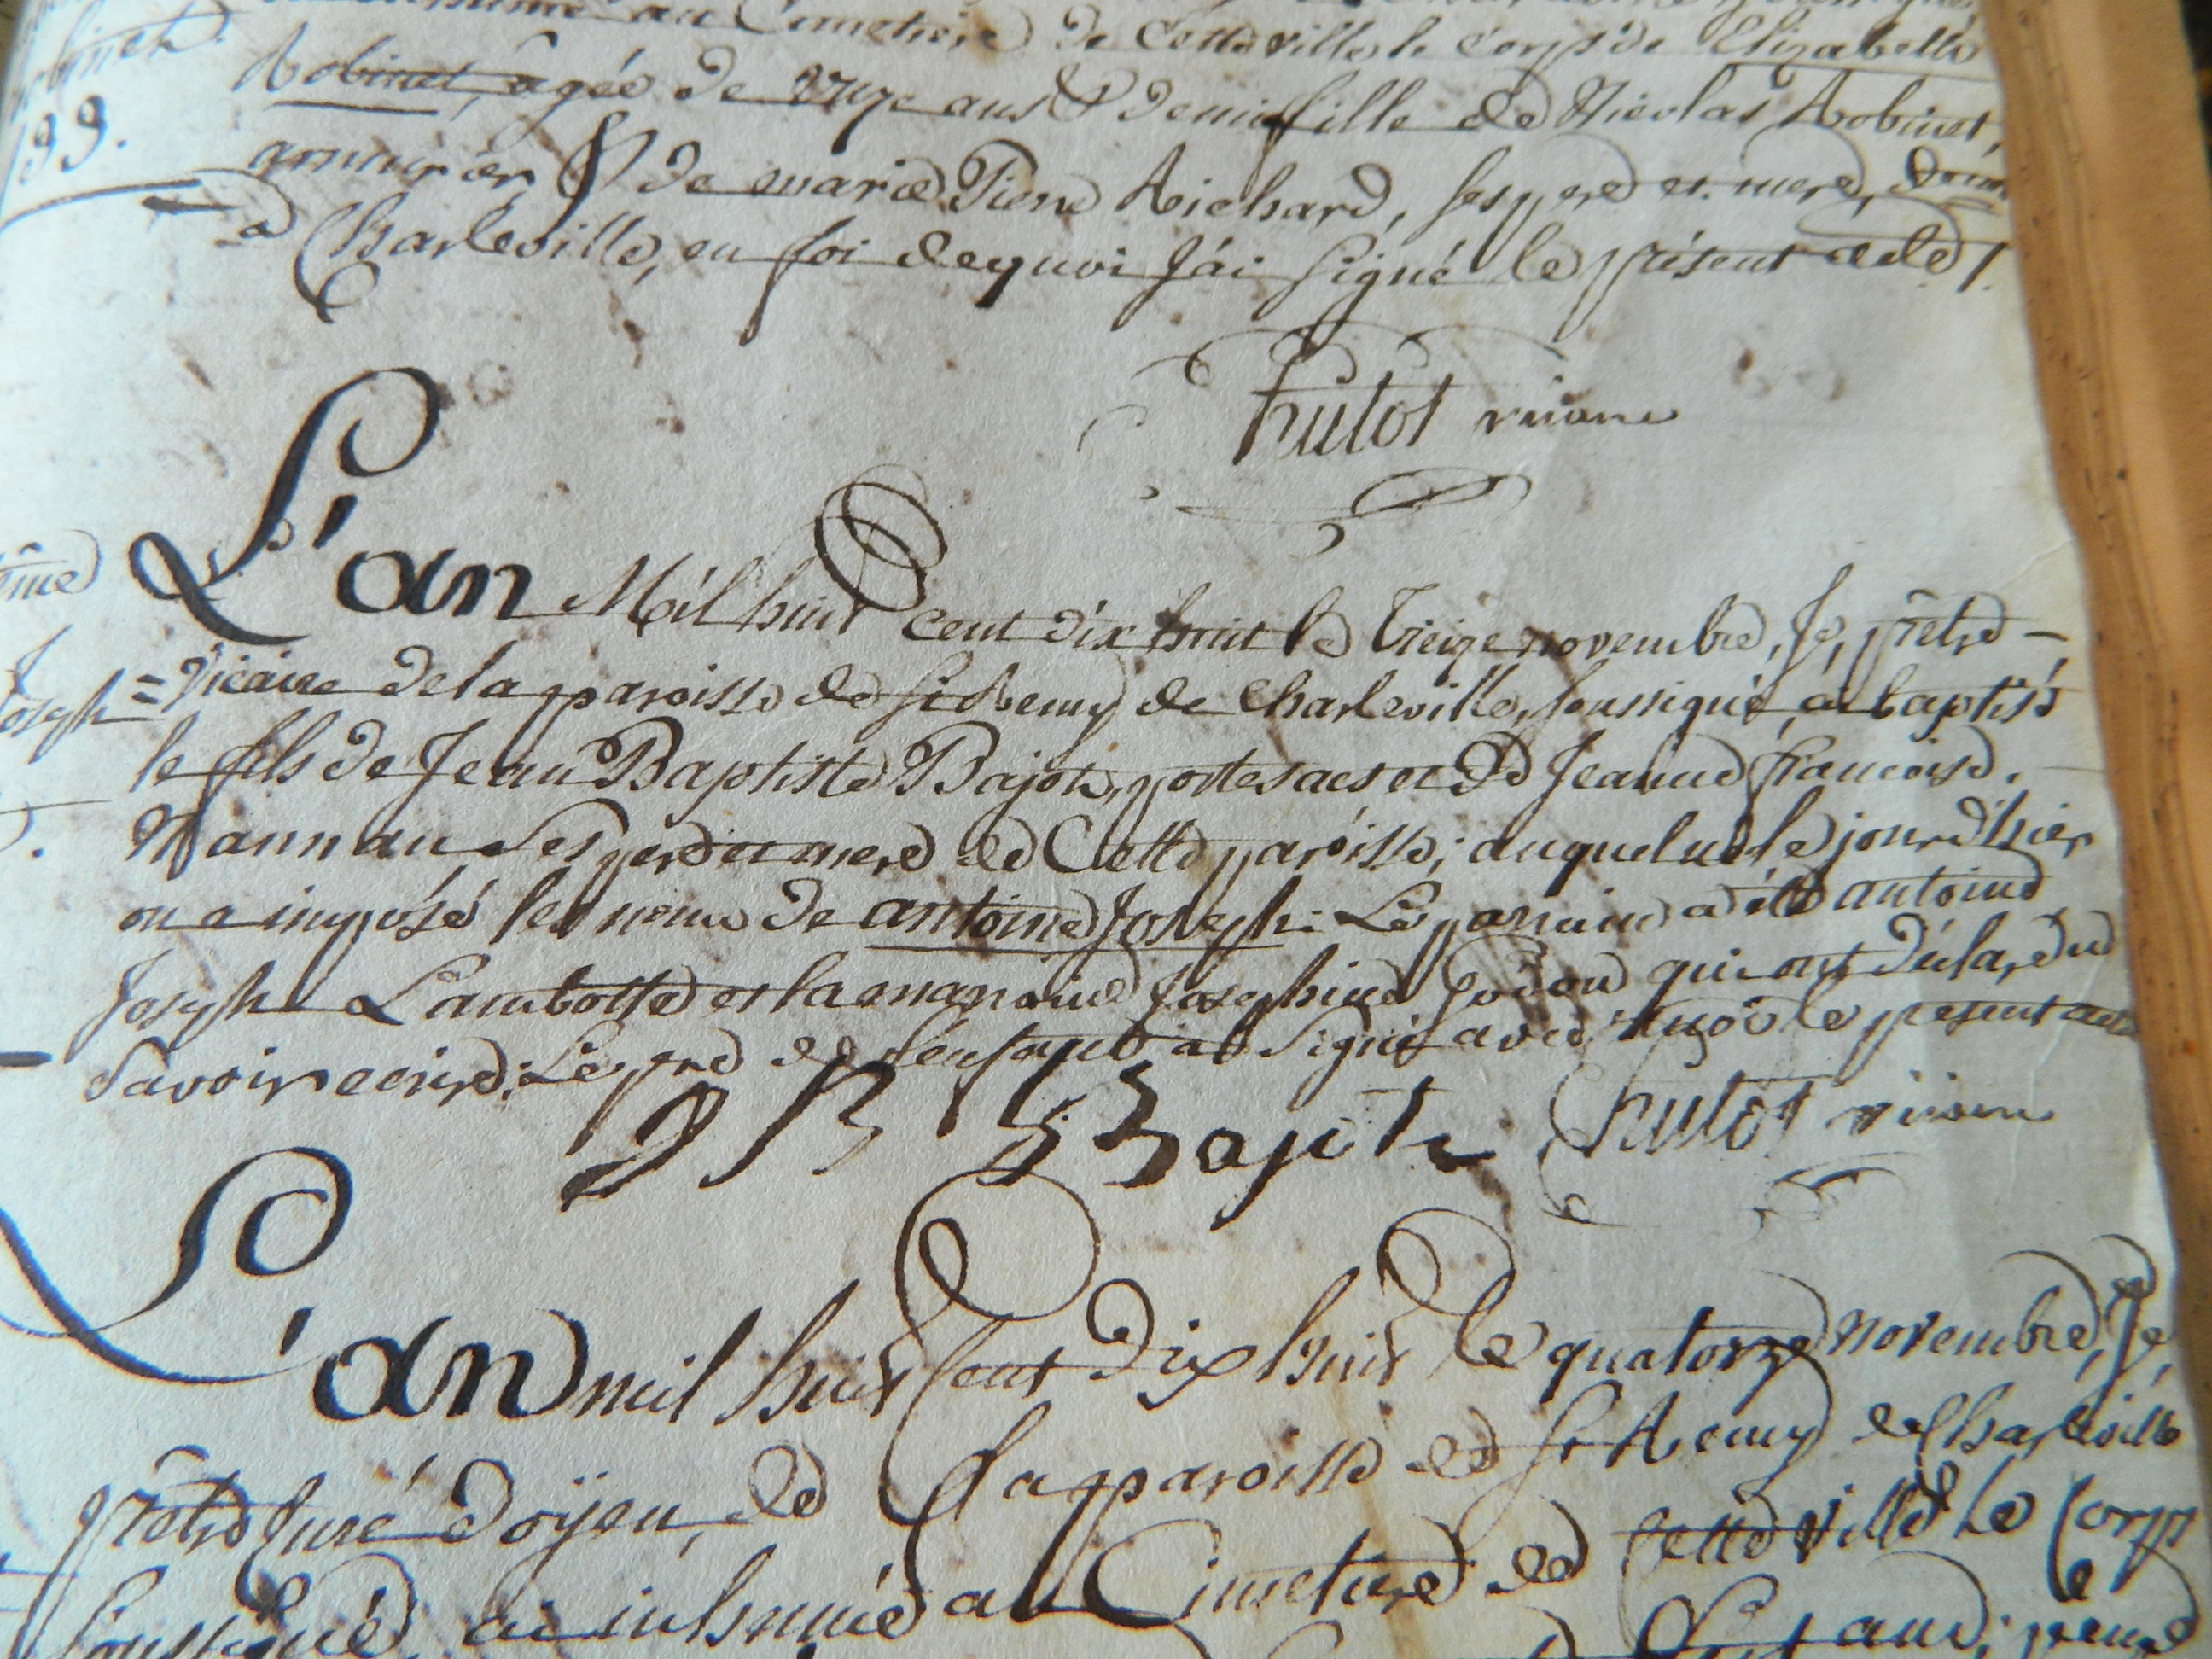 au Cimetiere de Cette ville le corps de Elizabette
Robinet.
Robinet, agée de onze ans & demi fille de Nicolas Robinet,
199.
armurier & de marie Piere Richard, ses pere et mere, dom
a Charleville, en foi dequoi J'ai signé le présent acte /.
hutot vicaire
L'an Mil huit cent dix huit le treize novembre, Je, prêtre -
Joseph = Vicaire de la paroisse de St Remy de Charleville, soussigné, ai baptisé
le fils de Jean Baptiste Bajot, porte sacs et de Jeanne francoise
Nannan ses pere et mere de Cette paroisse; auquel né le jour d'hier
on a imposé les noms de antoine Joseph: Le parrain a été antoine
Joseph Lambotte et la marraine Josephine Godon qui ont déclaré ne
Savoir ecrire: Le pere de l'enfant a signé avec moi le présent acte
J B Bajot hutot vicaire
L'an mil huit Cent Dix huit le quatorze novembre, Je,
prêtre Curé doÿen, de la paroisse de St Remy de Charleville
soussigné, ai inhumé au Cimetiere de Cette ville le Corps